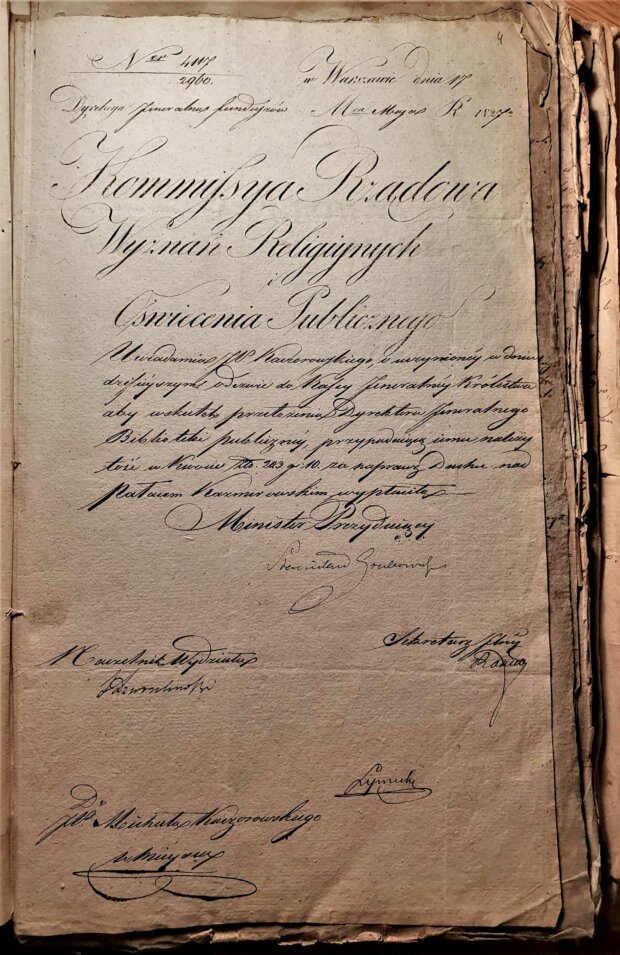 4
Nro 4117
2960.
w Warszawie dnia 17
Dyrekcya Jeneralna funduszów
Mca Maja R 1827
Kommissya Rządowa
Wyznań Religiynych
i
Oświecenia Publicznego
Uwiadamia JP. Kaczorowskiego, o uczynionéy w dniu
dzisieyszym odezwie do Kassy Jeneralnéy Królestwa
aby wskutku przełożenia Dyrektora Jeneralnego
Biblioteki publiczney, przypadaiącą iemu należy
tość w kwocie Złp. 243 g. 10. za naprawę Dachu nad
Pałacem Kazmirowskim wypłaciła
Minister Prezyduiący
Stanisław Grabowski
Sekretarz Jlny
Naczelnik Wydziału
Lipnicki
Do
JP. Michała Kaczorowskiego
w mieyscu